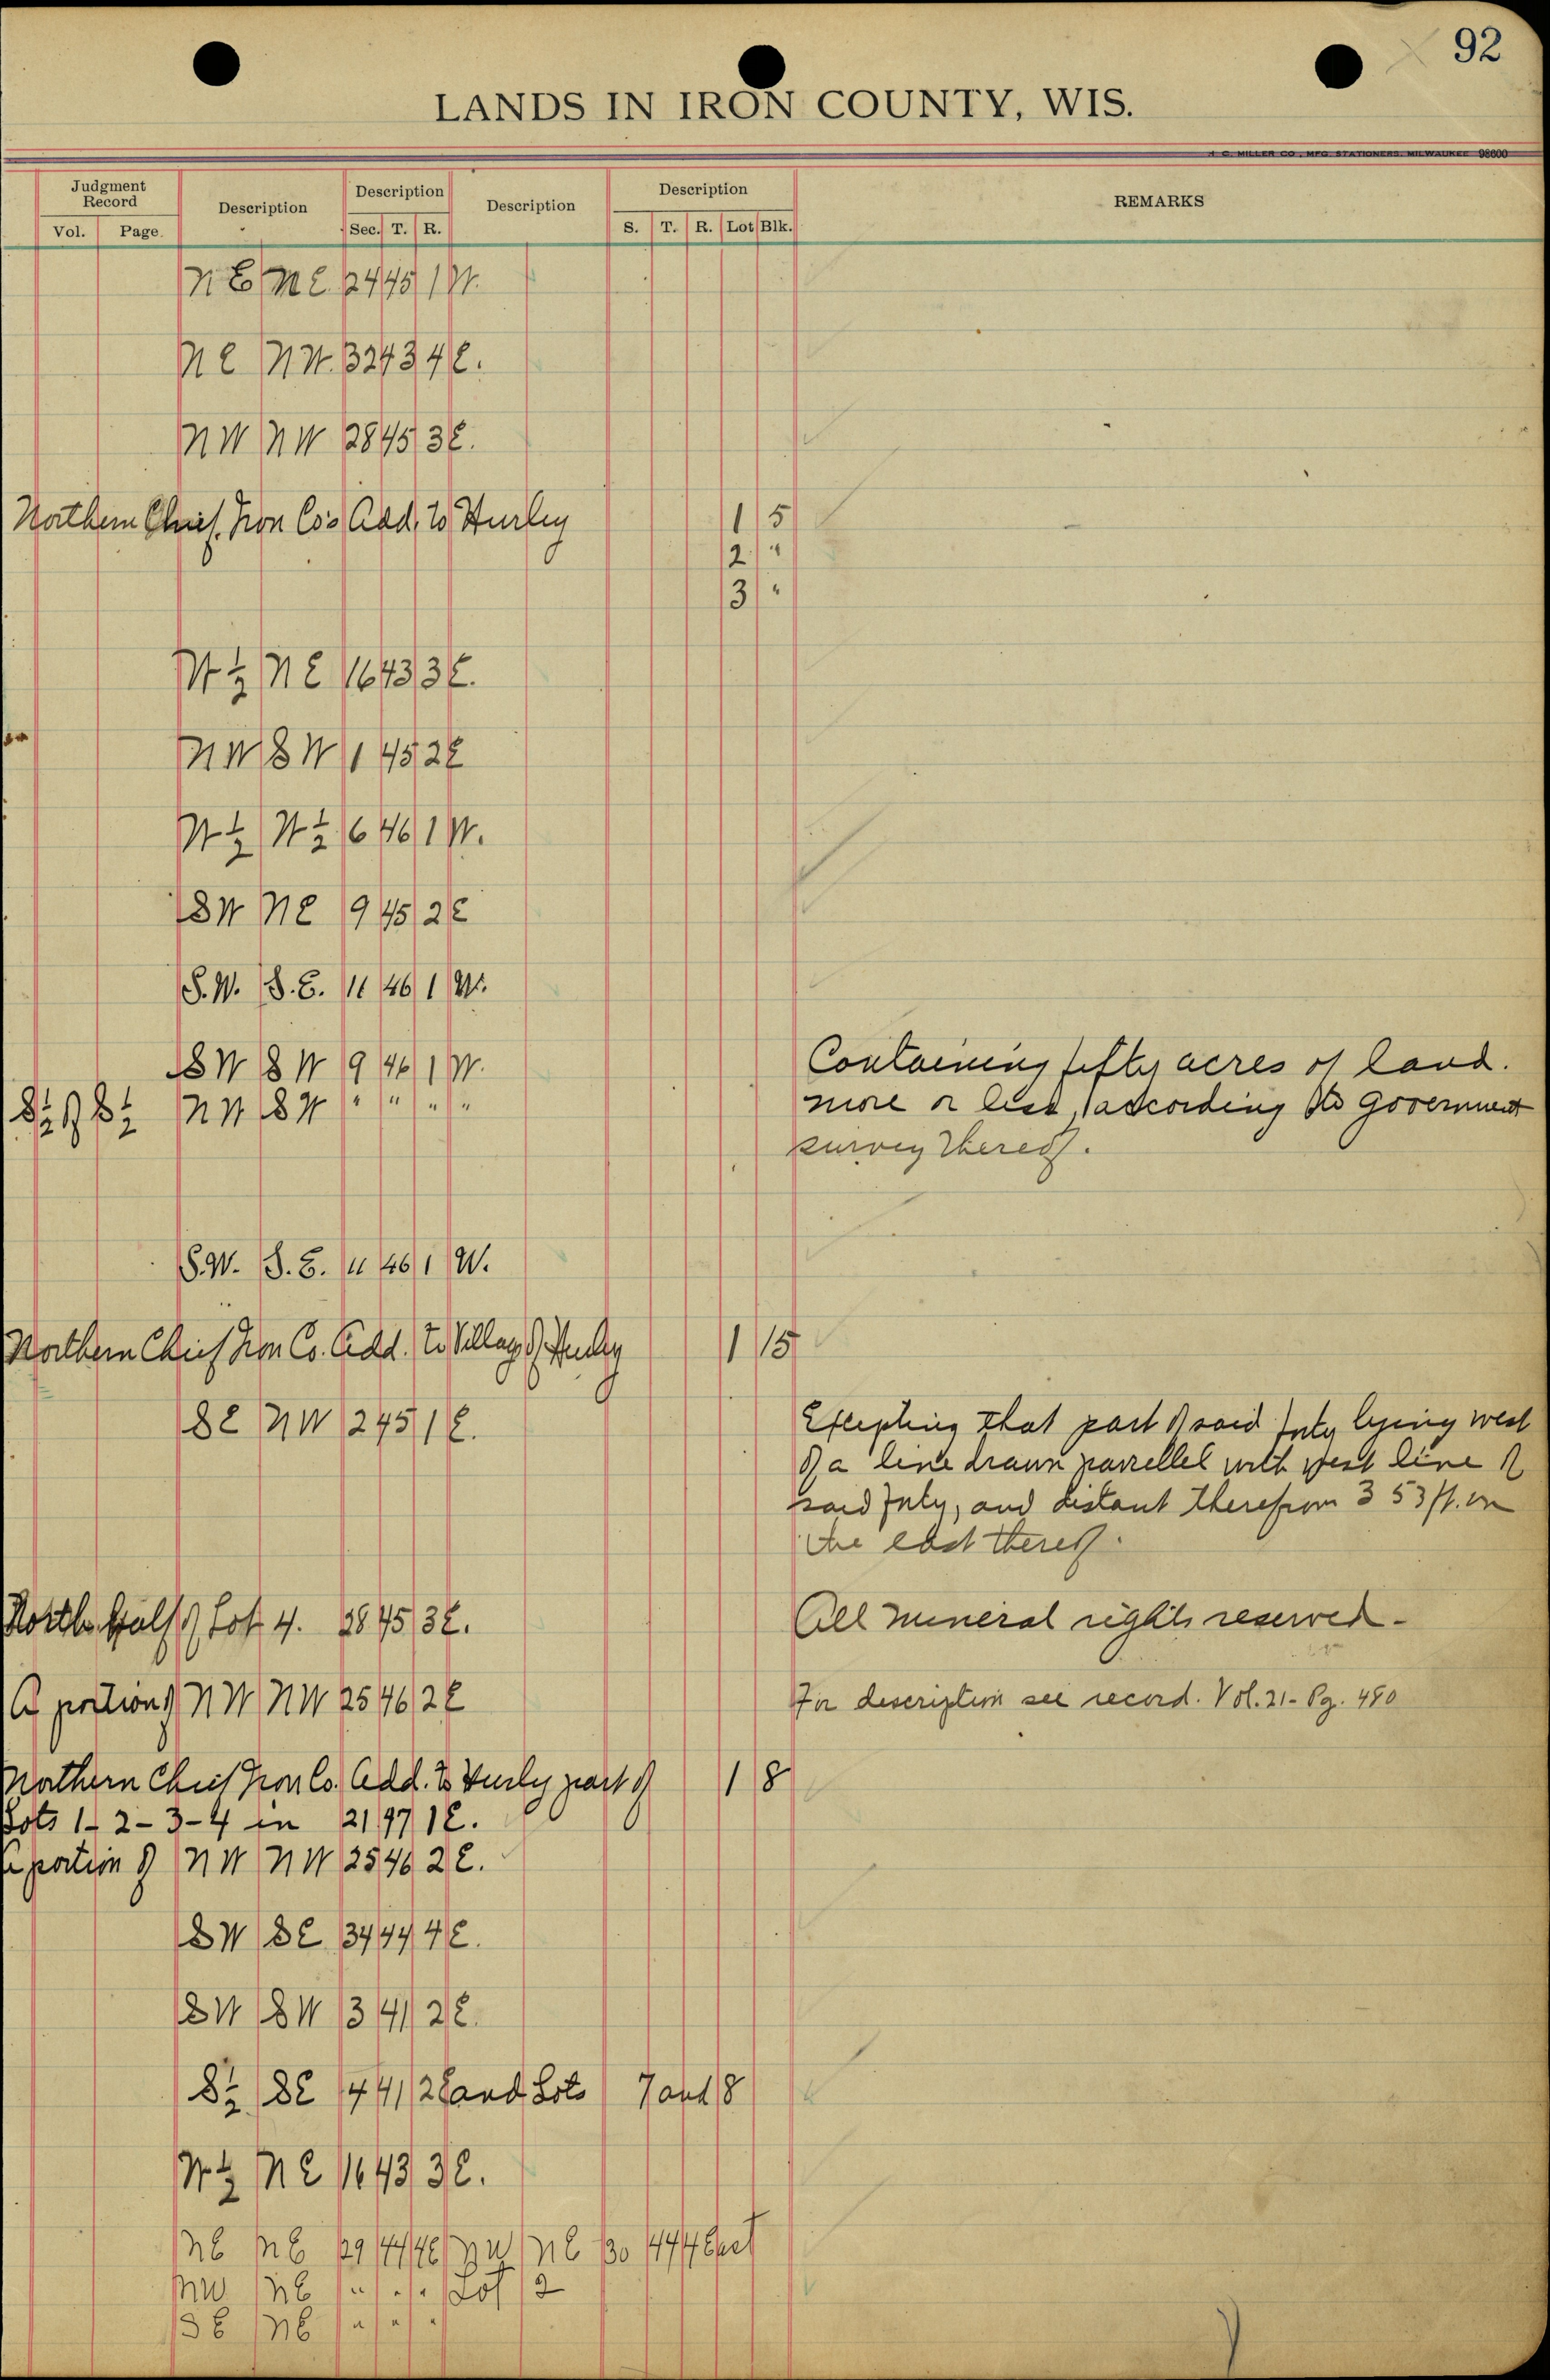 92
LANDS IN IRON COUNTY, WIS.
H. C. MILLER CO., MFG. STATIONERS, MILWAUKEE 98600
Judgment Record Description Description Description Description REMARKS
Vol. Page. Sec. T. R. S. T. R. Lot Blk.
NE NE 24 45 1 W.
NE NW. 32 43 4 E.
NW NW 28 45 3 E.
Northern Chief Iron Co's Add. to Hurley 1 5
2 "
3 "
W ½ NE 16 43 3 E.
NW SW 1 45 2 E
W ½ W ½ 6 46 1 W.
SW NE 9 45 2 E
S.W. S.E. 11 46 1 W.
SW SW 9 46 1 W. Containing fifty acres of land.
S½ of S½ NW SW " " " " more or less, according to government
survey thereof.
S.W. S.E. 11 46 1 W.
Northern Chief Iron Co. Add. to Village of Hurley 1 15
SE NW 2 45 1 E. Excepting that part of said forty lying west
of a line drawn parrellel with west line of
said forty, and distant therefrom 353 ft. on
the east thereof.
North half of Lot 4. 28 45 3 E. All mineral rights reserved.
A portion of NW NW 25 46 2 E For description see record. Vol. 21 - Pg. 480
Northern Chief Iron Co. Add. to Hurley part of 1 8
Lots 1-2-3-4 in 21 47 1 E.
a portion of NW NW 25 46 2 E.
SW SE 34 44 4 E.
SW SW 3 41 2 E.
S½ SE 4 41 2 E and Lots 7 and 8
W ½ NE 16 43 3 E.
NE NE 29 44 4E NW NE 30 44 4 East
NW NE " " " Lot 2
SE NE " " "